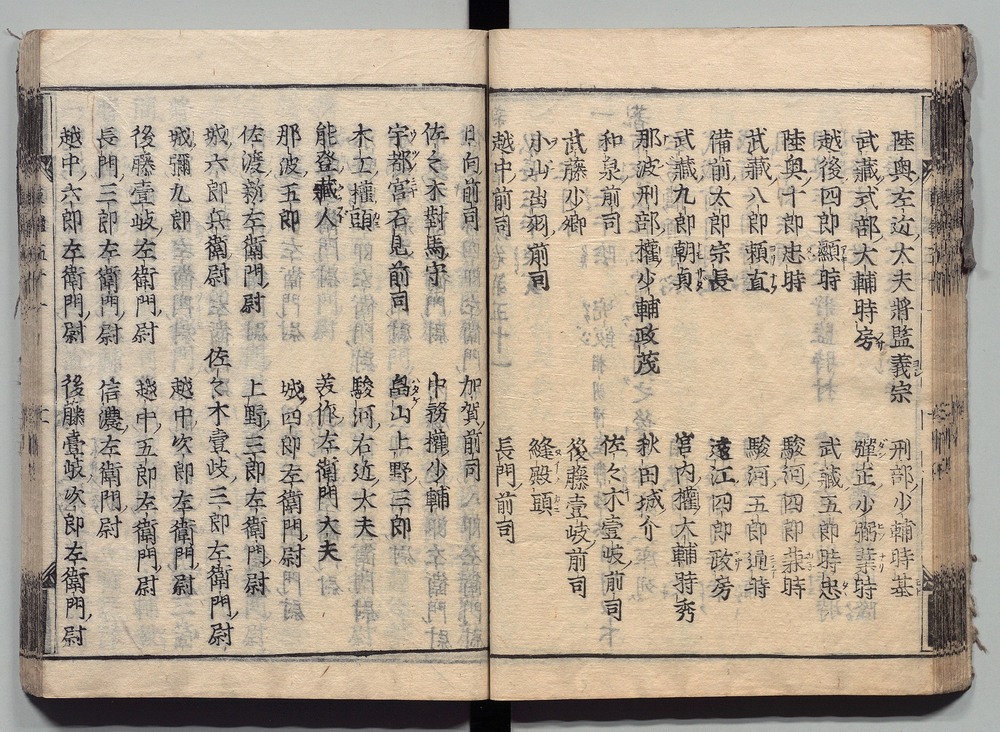 陸奥左近大夫將監義宗　刑部少輔時基
武藏式部大輔時房　彈正少弼業時
越後四郎顯時　武藏五郎時忠
陸奥十郎忠時　駿河四郎兼時
武藏八郎頼直　駿河五郎通時
備前太郎宗長　遠江四郎政房
武藏九郎朝貞　宮内權大輔時秀
那波刑部權少輔政茂　秋田城介
和泉前司　佐々木壹岐前司
武藤少卿　後藤壹岐前司
小山出羽前司　縫殿頭
越中前司　長門前司
日向前司　加賀前司
佐々木對馬守　中務權少輔
宇都宮石見前司　畠山上野三郎
木工權頭　駿河右近大夫
能登藏人　美作左衛門大夫
那波五郎　城四郎左衛門尉
佐渡　左衛門尉　上野三郎左衛門尉
城六郎兵衛尉　佐々木壹岐三郎左衛門尉
城彌九郎　越中次郎左衛門尉
後藤壹岐左衛門尉　越中五郎左衛門尉
長門三郎左衛門尉　信濃左衛門尉
越中六郎左衛門尉　後藤壹岐次郎左衛門尉